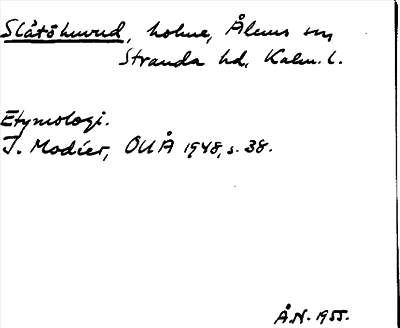 Slätöhuvud, holme, Ålems sn,
Stranda hd, Kalm. l.
Etymologi.
J. Modéer, OUÅ 1948, s. 38.
Å.N. 1955.